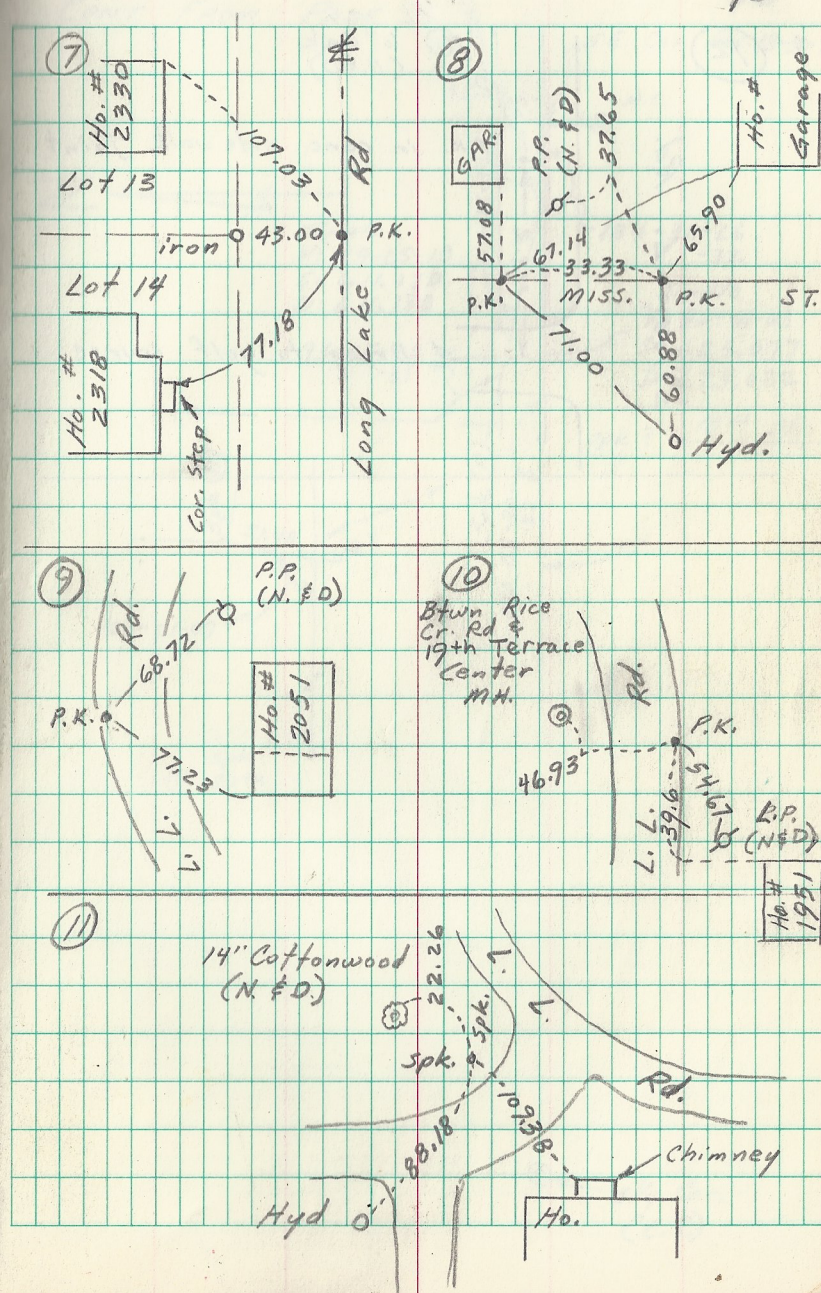 7
Ho. #
2330
107.03
Rd
Lot 13
iron
43.00
P.K.
Lot 14
Ho. #
2318
77.18
Long Lake
Cor. Step
8
GAR.
P.P.
(N. & D)
37.65
Ho. #
Garage
57.08
67.14
33.33
65.90
P.K.
MISS.
P.K.
ST.
71.00
60.88
Hyd.
9
Rd.
P.P.
(N. & D)
68.72
P.K.
Ho. #
2051
77.23
L. L.
10
Btwn Rice
Cr. Rd &
19th Terrace
Center
M.H.
Rd.
P.K.
46.93
39.6
54.67
L. L.
P.P.
(N&D)
Ho. #
1951
11
14" Cottonwood
(N. & D.)
22.26
spk.
Spk.
L. L.
Rd.
88.18
109.38
Chimney
Hyd
Ho.